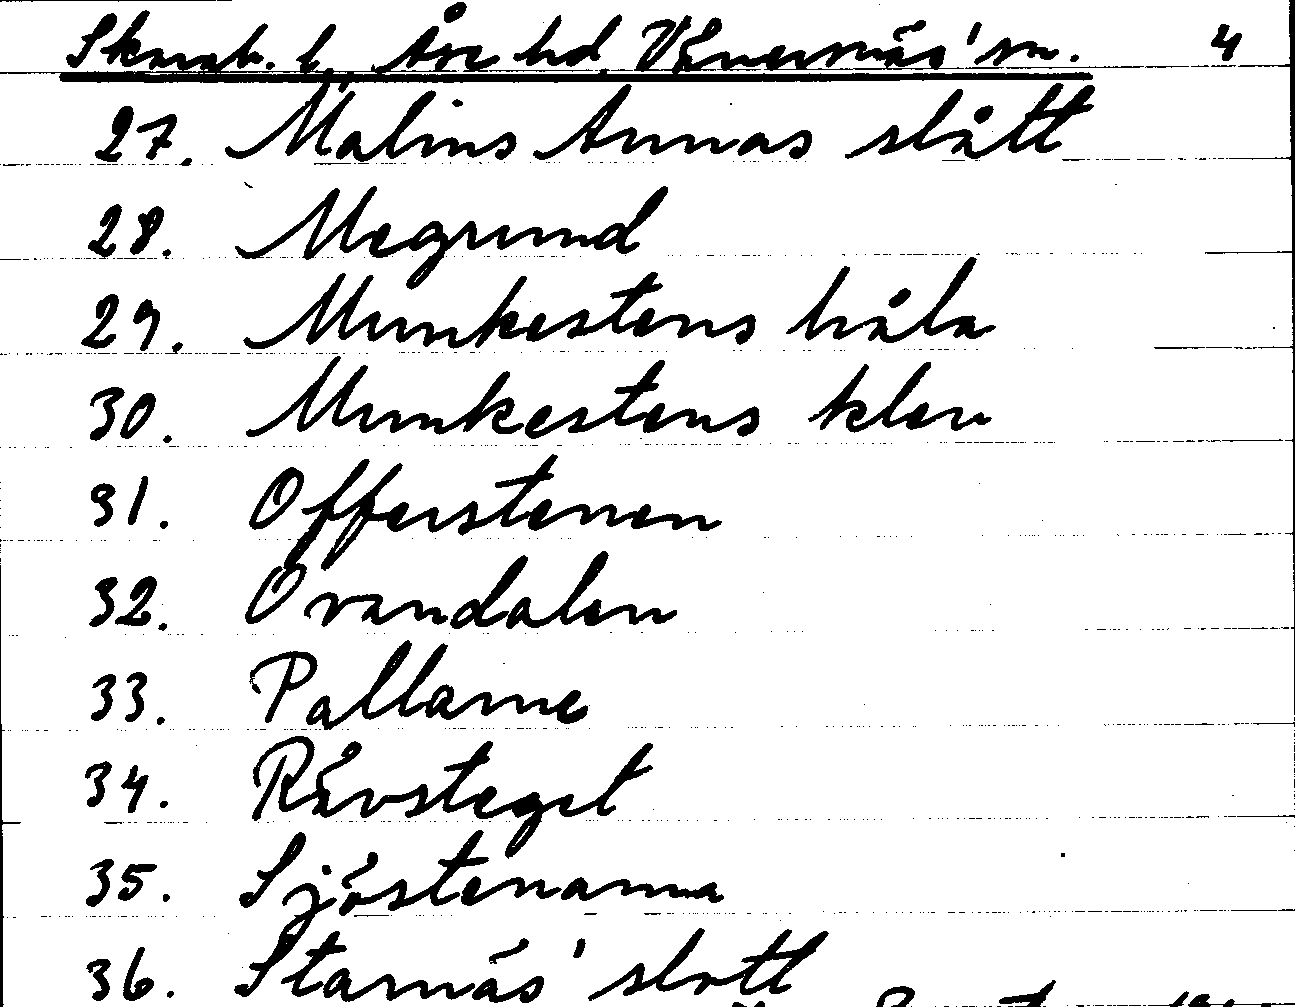 Skarab. l. Åse hd. Vänersnäs' sn. 4
27. Malins Annas slått
28. Megrund
29. Munkestens håla
30. Munkestens klev
31. Offerstenen
32. Ovandalen
33. Pallarne
34. Rävsteget
35. Sjöstenarna
36. Starnäs' slott